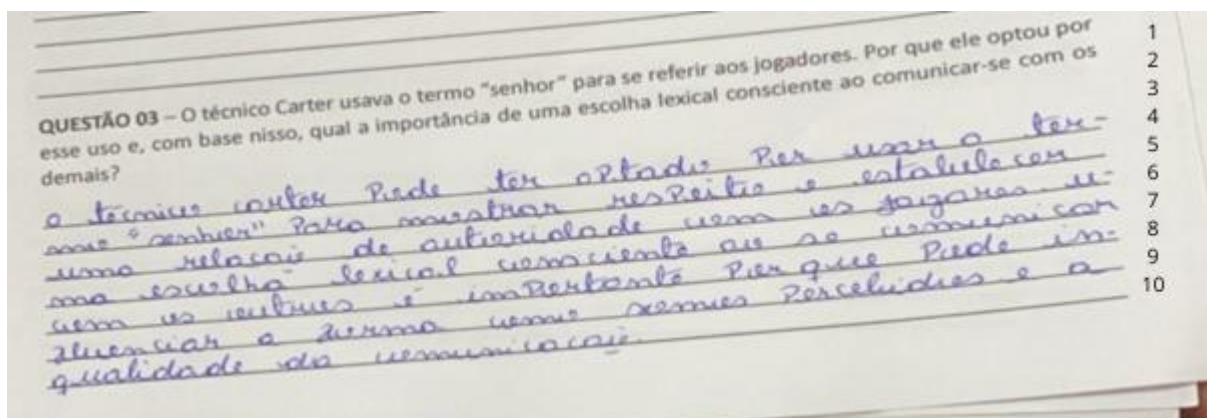 QUESTÃO 03 – O técnico Carter usava o termo "senhor" para se referir aos jogadores. Por que ele optou por
esse uso e, com base nisso, qual a importância de uma escolha lexical consciente ao comunicar-se com os
demais?
o técnico carter Pode ter oPtado Por usar o ter-
mo "senhor" Para mostrar resPeito e estabelecer
uma relacao de autoridade com os jogares. u-
ma escolha lexical consciente ao se comunicar
com os outros é imPortante Porque Pode in-
fluenciar a forma como somos Percebidos e a
qualidade da comunicacao.
1
2
3
4
5
6
7
8
9
10